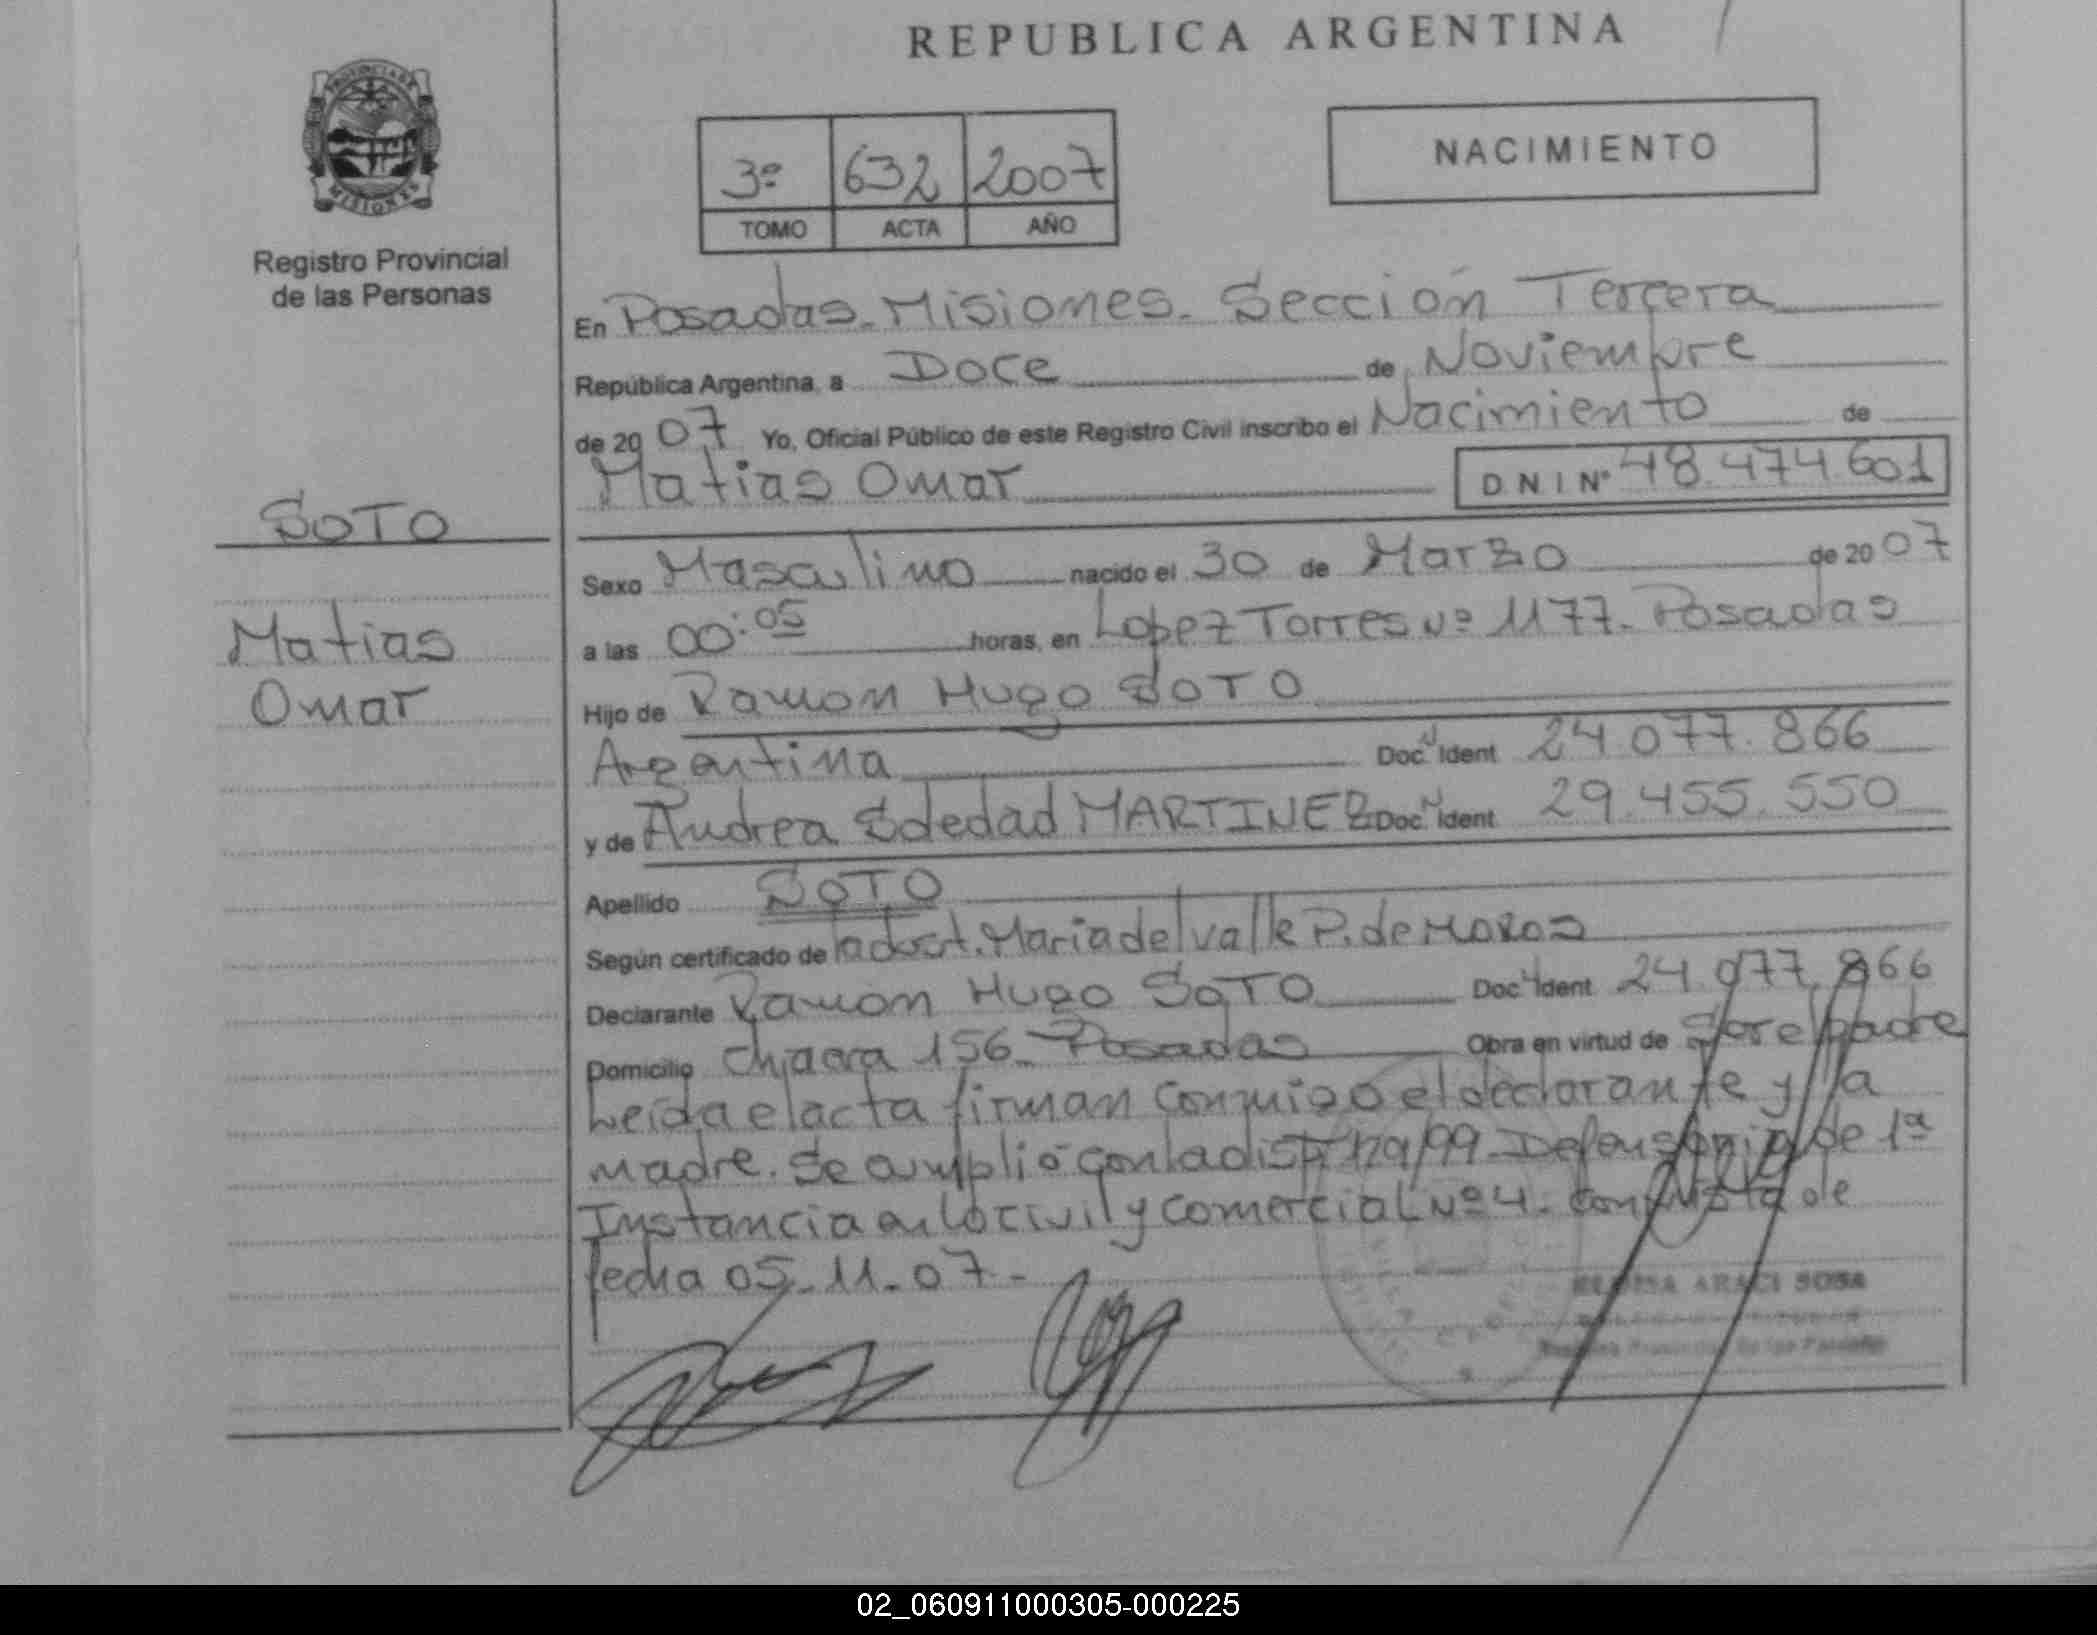 REPUBLICA ARGENTINA
PROVINCIA DE
MISIONES
Registro Provincial
de las Personas
3º 632 2007
TOMO ACTA AÑO
NACIMIENTO
SOTO
Matias
Omar
En Posadas-Misiones-Sección Tercera
República Argentina, a Doce de Noviembre
de 2007 Yo, Oficial Público de este Registro Civil inscribo el Nacimiento de
Matias Omar D N I Nº 48.474.601
Sexo Masculino nacido el 30 de Marzo de 2007
a las 00:05 horas, en Lopez Torres Nº 1177-Posadas
Hijo de Ramon Hugo SOTO
Argentina Doc. Ident 24.077.866
y de Andrea Soledad MARTINEZ Doc. Ident 29.455.550
Apellido SOTO
Según certificado de la obst. Maria del valle P. de
Declarante Ramon Hugo SOTO Doc. Ident 24.077.866
Domicilio Chacra 156-Posadas Obra en virtud de Ser el padre
Leida el acta firman conmigo el declarante y la
madre. Se amplió con la disp. 129/99-Defensoria de 1ª
Instancia en lo civil y comercial Nº 4- con vista de
fecha 05-11-07-
ARACI SOSA
02_060911000305-000225